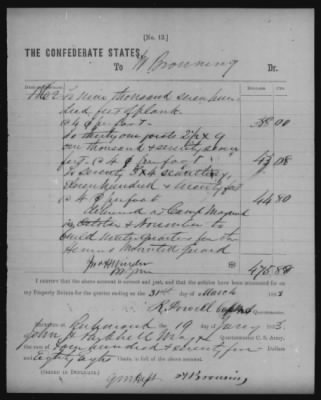 [No. 12.]
THE CONFEDERATE STATES,
To W Browning Dr.
DOLLARS CTS
1862 To Nine thousand seven hun
dred feet of plank
@ 4 ¢ per foot 388.00
To thirty one joists 2 x 9
one thousand & seventy seven
feet @ 4 ¢ per foot 43 08
To seventy 3x4 scantling,
Eleven hundred & twenty feet
@ 4 ¢ per foot 44 80
Delivered at Camp
in October & November to
build Winter Quarters for the
Mounted Guard
475.88
I certify that the above account is correct and just, and that the articles have been accounted for on
my Property Return for the quarter ending on the 31st of March 1863
Quartermaster.
Received at Richmond the 19 of Jany 1863,
of John Quartermaster C. S. Army,
the sum of Four hundred & seventy five Dollars
and Eighty eight Cents, in full of the above account.
(SIGNED IN DUPLICATE.)
W Browning